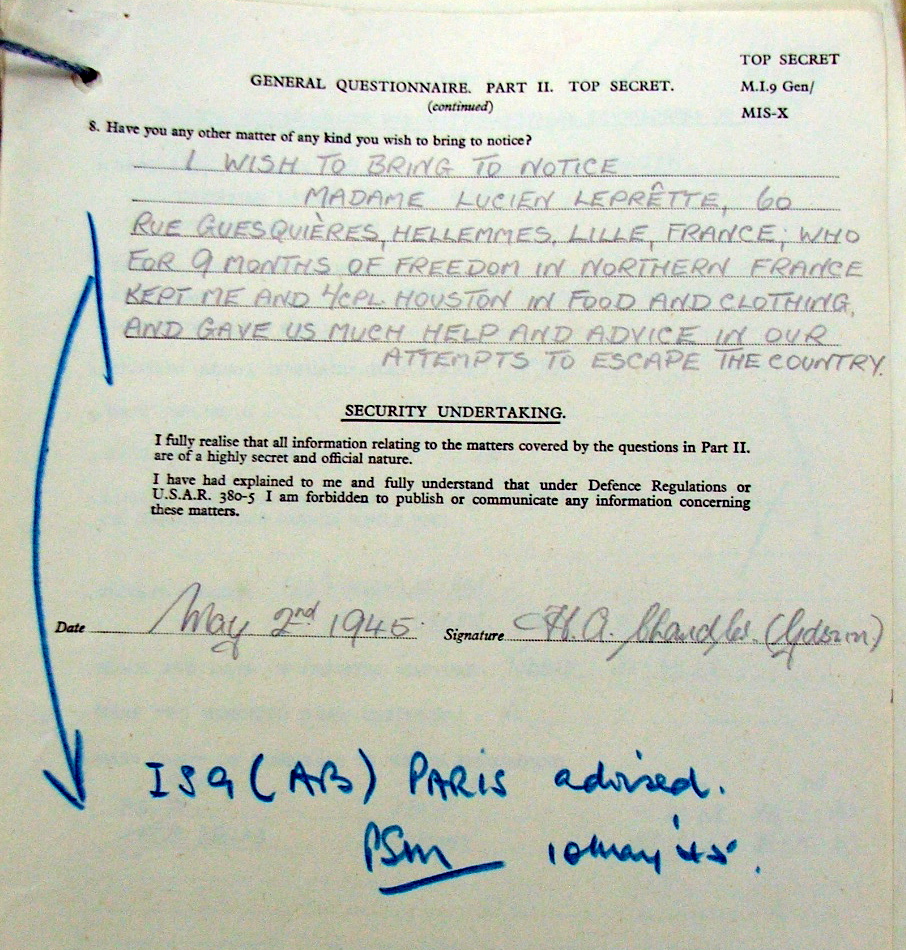 TOP SECRET
GENERAL QUESTIONNAIRE. PART II. TOP SECRET.
M.I.9 Gen/
(continued)
MIS-X
8. Have you any other matter of any kind you wish to bring to notice?
I WISH TO BRING TO NOTICE
MADAME LUCIEN LEPRÊTTE, 60
RUE GUESQUIÈRES, HELLEMMES, LILLE, FRANCE; WHO
FOR 9 MONTHS OF FREEDOM IN NORTHERN FRANCE
KEPT ME AND L/CPL HOUSTON IN FOOD AND CLOTHING,
AND GAVE US MUCH HELP AND ADVICE IN OUR
ATTEMPTS TO ESCAPE THE COUNTRY.
SECURITY UNDERTAKING.
I fully realise that all information relating to the matters covered by the questions in Part II.
are of a highly secret and official nature.
I have had explained to me and fully understand that under Defence Regulations or
U.S.A.R. 380-5 I am forbidden to publish or communicate any information concerning
these matters.
Date May 2nd 1945. Signature H.A. (Gdsmn)
IS9 (AB) PARIS advised.
PSM 10 May '45.